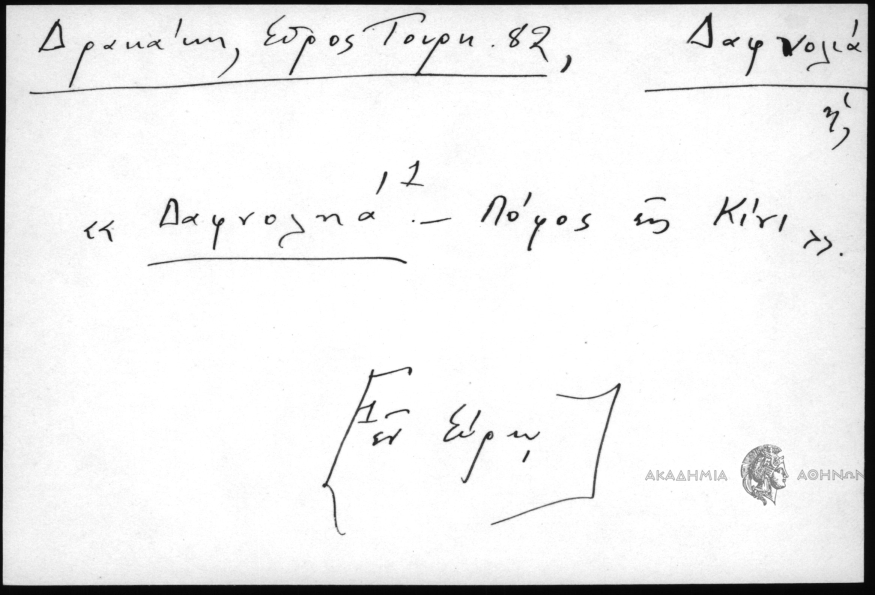 Δρακάκη, Σῦρος Τουρ κ. 82, Δαφνολιά
ἡ,
« Δαφνοληά¹.— Λόφος εἰς Κίνι ».
[¹ ἐν Σύρῳ]
ΑΚΑΔΗΜΙΑ ΑΘΗΝΩΝ